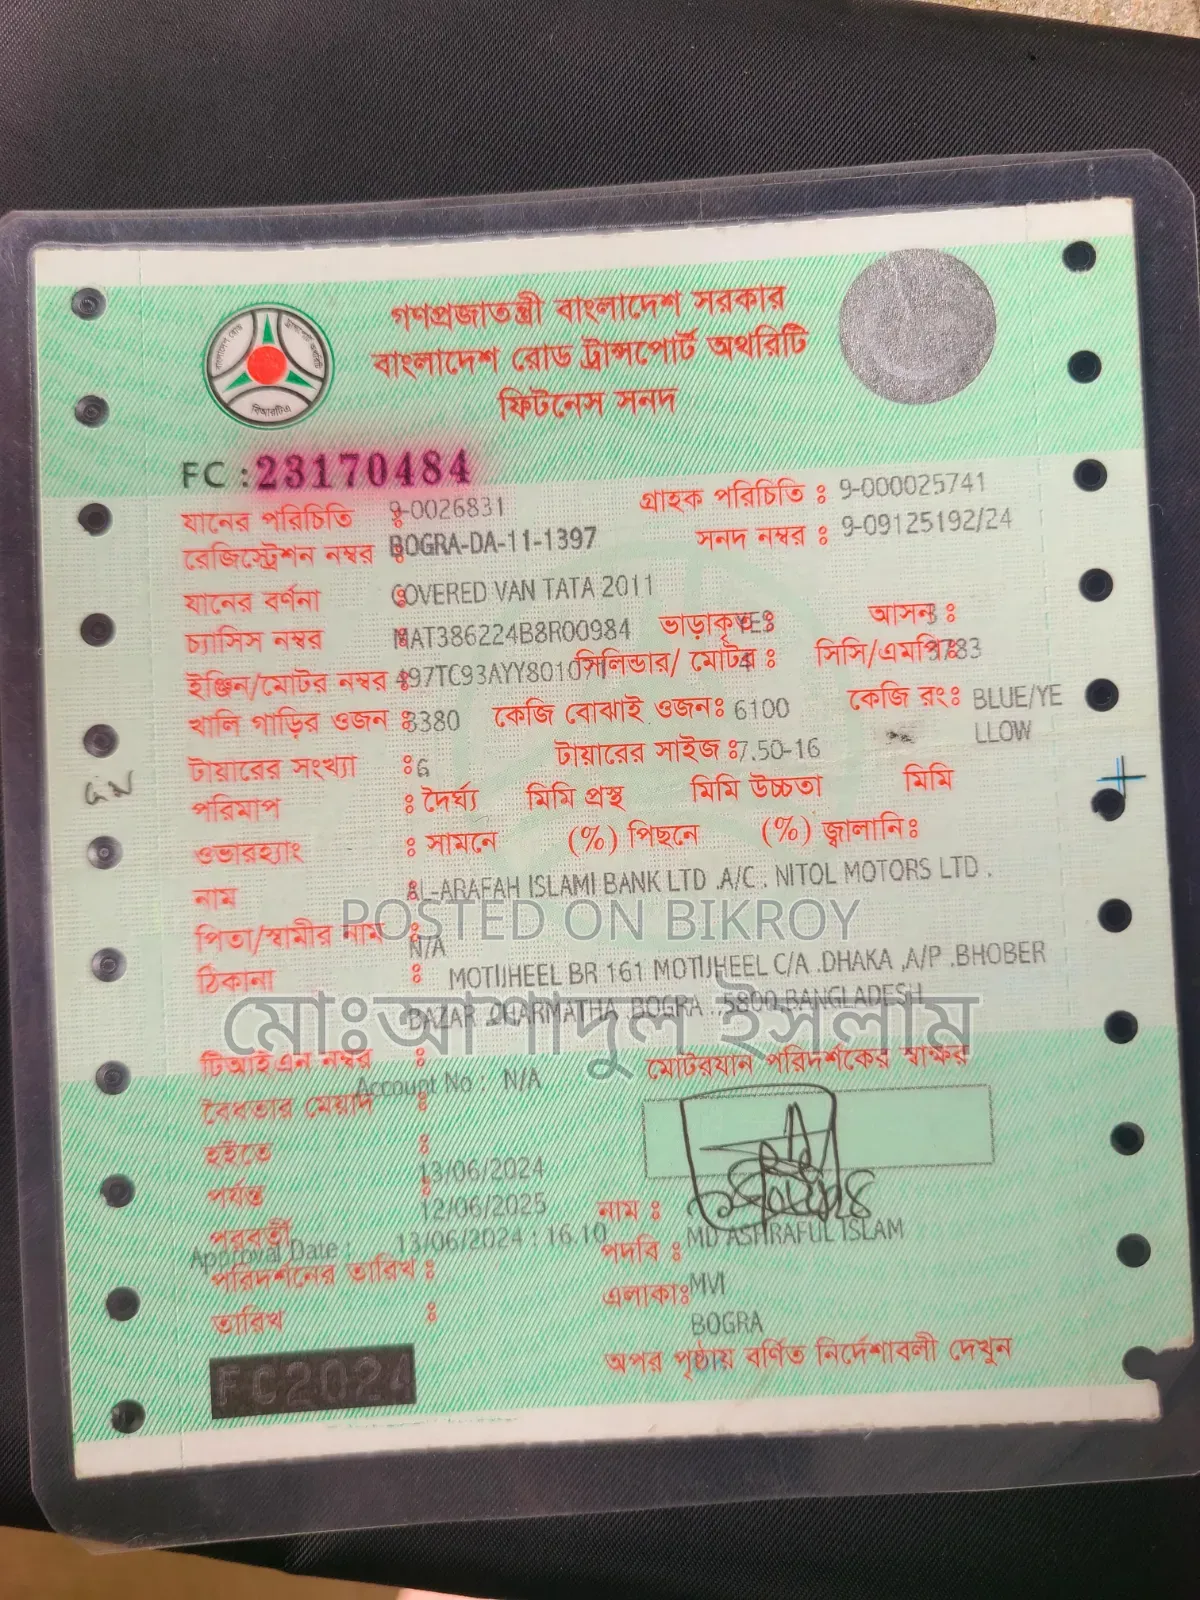 গণপ্রজাতন্ত্রী বাংলাদেশ সরকার
বাংলাদেশ রোড ট্রান্সপোর্ট অথরিটি
ফিটনেস সনদ
বিআরটিএ
FC : 23170484
যানের পরিচিতি : 9-0026831 গ্রাহক পরিচিতি : 9-000025741
রেজিস্ট্রেশন নম্বর : BOGRA-DA-11-1397 সনদ নম্বর : 9-09125192/24
যানের বর্ণনা : COVERED VAN TATA 2011
চ্যাসিস নম্বর : MAT386224B8R00984 ভাড়াকৃত : YES আসন : 3
ইঞ্জিন/মোটর নম্বর : 497TC93AYY8010 সিলিন্ডার/ মোটর : 4 সিসি/এমপি : 3783
খালি গাড়ির ওজন : 3380 কেজি বোঝাই ওজন : 6100 কেজি রং : BLUE/YE
LLOW
টায়ারের সংখ্যা : 6 টায়ারের সাইজ : 7.50-16
পরিমাপ : দৈর্ঘ্য মিমি প্রস্থ মিমি উচ্চতা মিমি
ওভারহ্যাং : সামনে (%) পিছনে (%) জ্বালানি :
নাম : AL-ARAFAH ISLAMI BANK LTD .A/C . NITOL MOTORS LTD .
পিতা/স্বামীর নাম : N/A
POSTED ON BIKROY
ঠিকানা : MOTIJHEEL BR 161 MOTIJHEEL C/A .DHAKA ,A/P .BHOBER
BAZAR .DHARMATHA .BOGRA ..5800,BANGLADESH
মোঃআশাদুল ইসলাম
টিআইএন নম্বর : মোটরযান পরিদর্শকের স্বাক্ষর
Account No : N/A
বৈধতার মেয়াদ :
হইতে : 13/06/2024
পর্যন্ত : 12/06/2025 নাম : MD ASHRAFUL ISLAM
পরবর্তী
Approval Date : 13/06/2024 : 16.10 পদবি : MVI
পরিদর্শনের তারিখ : এলাকা : BOGRA
তারিখ :
অপর পৃষ্ঠায় বর্ণিত নির্দেশাবলী দেখুন
FC2024